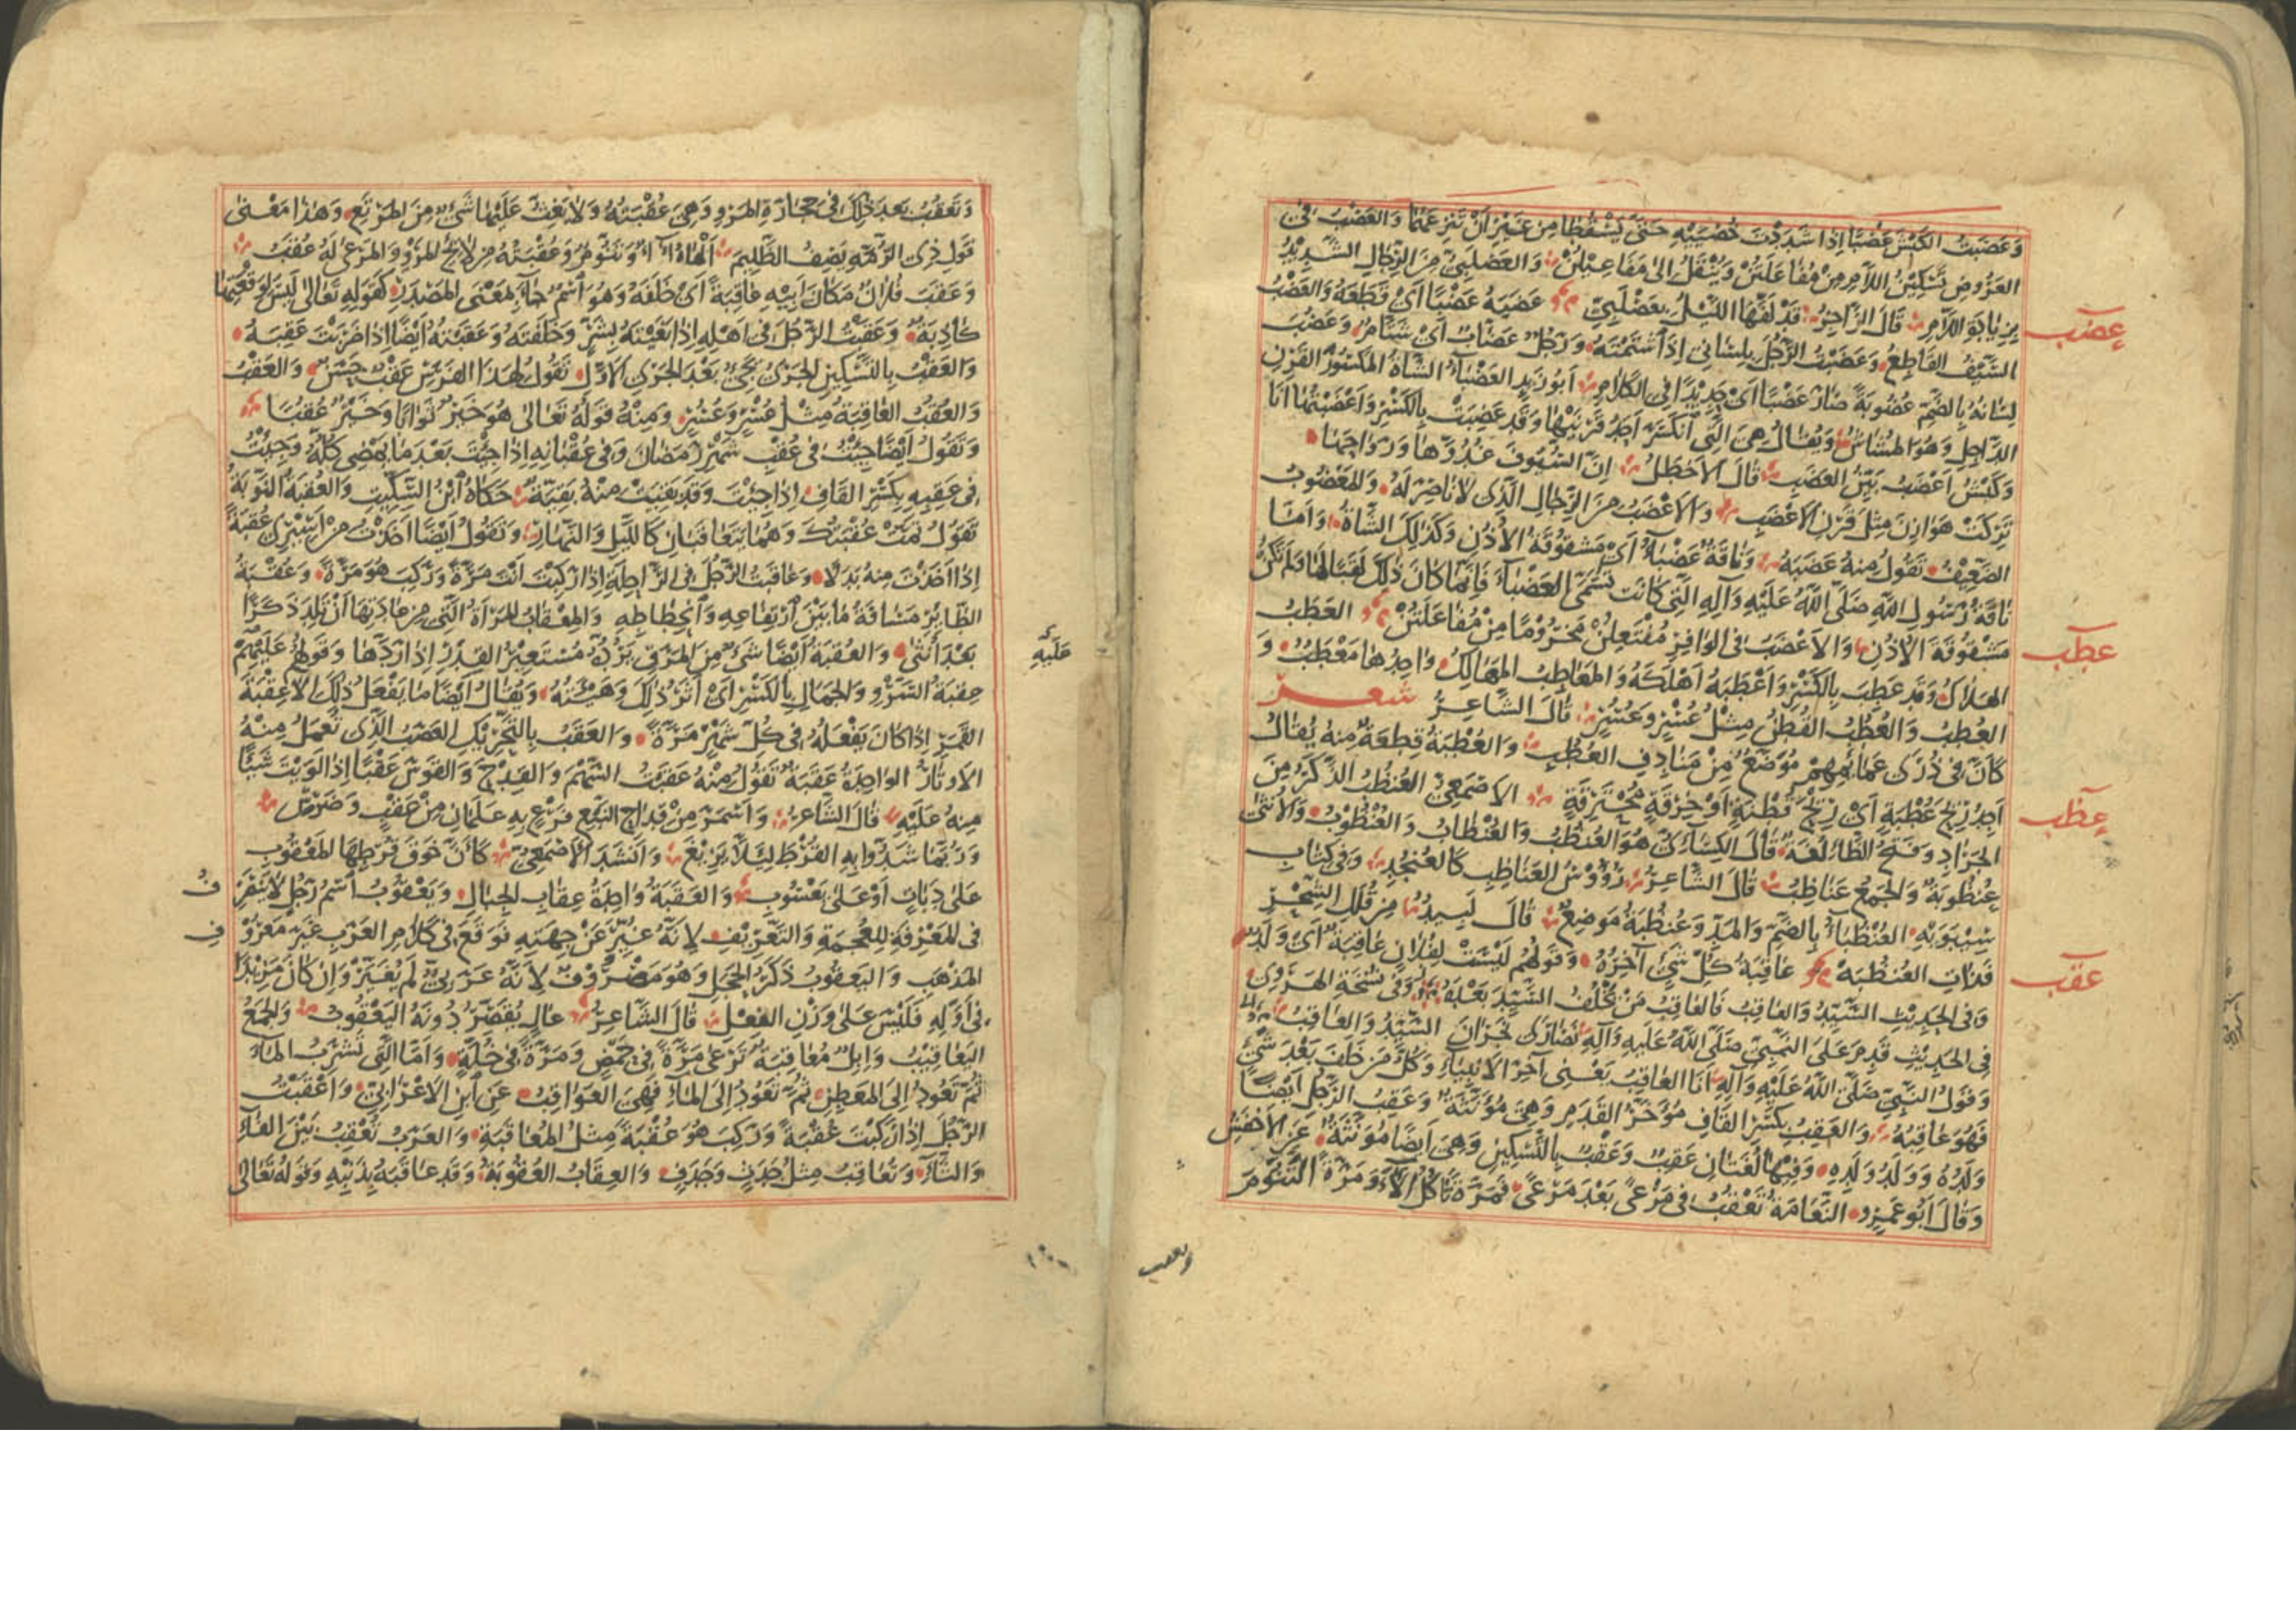 وَعَصَبْتُ الكَبْشَ عَصْبًا اِذَا شَدَدْتَ خُصْيَيْهِ حَتّٰى يَسْقُطَا مِنْ غَيْرِ اَنْ تَنْزِعَهُمَا وَالعَصْبُ فِى
العَرُوضِ تَسْكِيْنُ اللاَّمِ مِنْ مُفَاعَلَتُنْ وَيُنْقَلُ اِلٰى مَفَاعِيْلُنْ وَالعَصْلَبِىُّ مِنَ الرِّجَالِ الشَّدِيْدُ
بِزِيَادَةِ اللاَّمِ قَالَ الرَّاجِزُ قَدْ لَفَّهَا اللَّيْلُ بِعَصْلَبِىٍّ عَضَبَهُ عَضْبًا اَىْ قَطَعَهُ وَالعَضْبُ
عضب
السَّيْفُ القَاطِعُ وَعَضَبْتُ الرَّجُلَ بِلِسَانِى اِذَا شَتَمْتَهُ وَرَجُلٌ عَضَّابٌ اَىْ شَتَّامٌ وَعَضُبَ
لِسَانُهُ بِالضَّمِّ عُضُوبَةً صَارَ عَضْبًا اَىْ حَدِيْدًا فِى الكَلاَمِ اَبُو زَيْدٍ العَضْبَاءُ الشَّاةُ المَكْسُوْرَةُ القَرْنِ
الدَّاخِلِ وَهُوَ المُشَاشُ وَيُقَالُ هِىَ الَّتِى انْكَسَرَ اَحَدُ قَرْنَيْهَا وَقَدْ عَضِبَتْ بِالكَسْرِ وَاَعْضَبْتُهَا اَنَا
وَكَبْشٌ اَعْضَبُ بَيِّنُ العَضَبِ قَالَ الاَخْطَلُ اِنَّ السُّيُوْفَ غُدُوَّهَا وَرَوَاحَهَا
تَرَكَتْ هَوَازِنَ مِثْلَ قَرْنِ الاَعْضَبِ وَالاَعْضَبُ مِنَ الرِّجَالِ الَّذِى لاَ نَاصِرَ لَهُ وَالمَعْضُوْبُ
الضَّعِيْفُ تَقُوْلُ مِنْهُ عَضَبَهُ وَنَاقَةٌ عَضْبَاءُ اَىْ مَشْقُوقَةُ الاُذُنِ وَكَذٰلِكَ الشَّاةُ وَاَمَّا
نَاقَةُ رَسُولِ اللّٰهِ صَلَّى اللّٰهُ عَلَيْهِ وَآلِهِ الَّتِى كَانَتْ تُسَمَّى العَضْبَاءَ فَاِنَّمَا كَانَ ذٰلِكَ لَقَبًا لَهَا وَلَمْ تَكُنْ
مَشْقُوقَةَ الاُذُنِ وَالاَعْضَبُ فِى الوَافِرِ مُفْتَعِلُنْ مَخْرُومًا مِنْ مُفَاعَلَتُنْ العَطَبُ
عطب
الهَلاَكُ وَقَدْ عَطِبَ بِالكَسْرِ وَاَعْطَبَهُ اَهْلَكَهُ وَالمَعَاطِبُ المَهَالِكُ وَاحِدُهَا مَعْطَبٌ وَ
العُطْبُ وَالعُطُبُ القُطْنُ مِثْلُ عُسْرٍ وَعُسُرٍ قَالَ الشَّاعِرُ شعر
كَاَنَّ فِى ذُرَى عَمَائِمِهِمْ مُوَضَّعٌ مِنْ مَنَادِفِ العُطُبِ وَالعُطْبَةُ قِطْعَةٌ مِنْهُ يُقَالُ
اَجِدُ رِيْحَ عُطْبَةٍ اَىْ رِيْحَ قُطْنَةٍ اَوْ خِرْقَةٍ مُحْتَرِقَةٍ الاَصْمَعِىُّ العُنْظُبُ الذَّكَرُ مِنَ
عظب
الجَرَادِ وَفَتْحُ الظَّاءِ لُغَةٌ قَالَ الكِسَائِىُّ هُوَ العُنْظُبُ وَالعُنْظَابُ وَالعُنْظُوْبُ وَالاُنْثٰى
عُنْظُوبَةٌ وَالجَمْعُ عَنَاظِبُ قَالَ الشَّاعِرُ رُؤُوْسُ العَنَاظِبِ كَالعُنْجُدِ وَفِى كِتَابِ
سِيْبَوَيْهِ العُنْظُبَاءُ بِالضَّمِّ وَالمَدِّ وَعُنْظُبَةُ مَوْضِعٌ قَالَ لَبِيدٌ مِنْ قُلَلِ الشِّحْرِ
فَذَاتِ العُنْظُبَهْ عَاقِبَةُ كُلِّ شَىْءٍ آخِرُهُ وَقَوْلُهُمْ لَيْسَتْ لِفُلاَنٍ عَاقِبَةٌ اَىْ وَلَدٌ
عقب
وَفِى الحَدِيْثِ السَّيِّدُ وَالعَاقِبُ فَالعَاقِبُ مَنْ يَخْلُفُ السَّيِّدَ بَعْدَهُ وَفِى نُسْخَةِ الهَرَوِىِّ
فِى الحَدِيْثِ قَدِمَ عَلَى النَّبِىِّ صَلَّى اللّٰهُ عَلَيْهِ وَآلِهِ نَصَارَى نَجْرَانَ السَّيِّدُ وَالعَاقِبُ
وَقَوْلُ النَّبِىِّ صَلَّى اللّٰهُ عَلَيْهِ وَآلِهِ اَنَا العَاقِبُ يَعْنِى آخِرَ الاَنْبِيَاءِ وَكُلُّ مَنْ خَلَفَ بَعْدَ شَىْءٍ
فَهُوَ عَاقِبُهُ وَالعَقِبُ بِكَسْرِ القَافِ مُؤَخَّرُ القَدَمِ وَهِىَ مُؤَنَّثَةٌ وَعَقِبُ الرَّجُلِ اَيْضًا
وَلَدُهُ وَوَلَدُ وَلَدِهِ وَفِيْهَا لُغَتَانِ عَقِبٌ وَعَقْبٌ بِالتَّسْكِيْنِ وَهِىَ اَيْضًا مُؤَنَّثَةٌ عَنِ الاَخْفَشِ
وَقَالَ اَبُو عَمْرٍو النَّعَامَةُ تَعْقُبُ فِى مَرْعًى بَعْدَ مَرْعًى فَمَرَّةً تَأْكُلُ الآءَ وَمَرَّةً التَّنُّوْمَ
وتعقب
وَتَعْقُبُ بَعْدَ ذٰلِكَ فِى حِجَارَةِ المَرْوِ وَهِىَ عُقْبَتُهُ وَلاَ يَغِثُّ عَلَيْهَا شَىْءٌ مِنَ المَرْتَعِ وَهٰذَا مَعْنٰى
قَوْلِ ذِى الرُّمَّةِ يَصِفُ الظَّلِيْمَ اَلْهَاهُ آءٌ وَتَنُّوْمٌ وَعُقْبَتُهُ مِنْ لاَئِحِ المَرْوِ وَالمَرْعٰى لَهُ عُقَبُ
وَعَقَبَ فُلاَنٌ مَكَانَ اَبِيْهِ عَاقِبَةً اَىْ خَلَفَهُ وَهُوَ اسْمٌ جَاءَ بِمَعْنَى المَصْدَرِ كَقَوْلِهِ تَعَالٰى لَيْسَ لِوَقْعَتِهَا
كَاذِبَةٌ وَعَقَبْتُ الرَّجُلَ فِى اَهْلِهِ اِذَا بَغَيْتَهُ بِشَرٍّ وَخَلَفْتَهُ وَعَقَبْتُهُ اَيْضًا اِذَا ضَرَبْتَ عَقِبَهُ
وَالعَقْبُ بِالتَّسْكِيْنِ الجَرْىُ يَجِىْءُ بَعْدَ الجَرْىِ الاَوَّلِ تَقُوْلُ لِهٰذَا الفَرَسِ عَقْبٌ حَسَنٌ وَالعَقْبُ
وَالعُقُبُ العَاقِبَةُ مِثْلُ عُسْرٍ وَعُسُرٍ وَمِنْهُ قَوْلُهُ تَعَالٰى هُوَ خَيْرٌ ثَوَابًا وَخَيْرٌ عُقْبًا
وَتَقُوْلُ اَيْضًا جِئْتُ فِى عُقْبِ شَهْرِ رَمَضَانَ وَفِى عُقْبَانِهِ اِذَا جِئْتَ بَعْدَ مَا يَمْضِى كُلُّهُ وَجِئْتُ
فِى عَقِبِهِ بِكَسْرِ القَافِ اِذَا جِئْتَ وَقَدْ بَقِيَتْ مِنْهُ بَقِيَّةٌ حَكَاهُ ابْنُ السِّكِّيْتِ وَالعُقْبَةُ النَّوْبَةُ
تَقُوْلُ تَمَّتْ عُقْبَتُكَ وَهُمَا يَتَعَاقَبَانِ كَاللَّيْلِ وَالنَّهَارِ وَتَقُوْلُ اَيْضًا اَخَذْتُ مِنْ اَسِيْرِى عُقْبَةً
اِذَا اَخَذْتَ مِنْهُ بَدَلاً وَعَاقَبْتُ الرَّجُلَ فِى الرَّاحِلَةِ اِذَا رَكِبْتَ اَنْتَ مَرَّةً وَرَكِبَ هُوَ مَرَّةً وَعُقْبَةُ
الطَّائِرِ مَسَافَةُ مَا بَيْنَ ارْتِفَاعِهِ وَانْحِطَاطِهِ وَالمِعْقَابُ المَرْأَةُ الَّتِى مِنْ عَادَتِهَا اَنْ تَلِدَ ذَكَرًا
بَعْدَ اُنْثٰى وَالعُقْبَةُ اَيْضًا شَىْءٌ مِنَ المَرَقِ يَرُدُّهُ مُسْتَعِيْرُ القِدْرِ اِذَا رَدَّهَا وَقَوْلُهُمْ عَلَيْهِمْ
عَلَيْهِ
عِقْبَةُ السَّرْوِ وَالجَمَالِ بِالكَسْرِ اَىْ اَثَرُ ذٰلِكَ وَهَيْئَتُهُ وَيُقَالُ اَيْضًا مَا يَفْعَلُ ذٰلِكَ اِلاَّ عِقْبَةَ
القَمَرِ اِذَا كَانَ يَفْعَلُهُ فِى كُلِّ شَهْرٍ مَرَّةً وَالعَقَبُ بِالتَّحْرِيْكِ العَصَبُ الَّذِى تُعْمَلُ مِنْهُ
الاَوْتَارُ الوَاحِدَةُ عَقَبَةٌ تَقُوْلُ مِنْهُ عَقَبْتُ السَّهْمَ وَالقِدْحَ وَالقَوْسَ عَقْبًا اِذَا لَوَيْتَ شَيْئًا
مِنْهُ عَلَيْهِ قَالَ الشَّاعِرُ وَاَسْمَرَ مِنْ قِدَاحِ النَّبْعِ فَرْعٍ بِهِ عَلَمَانِ مِنْ عَقَبٍ وَضَرْسِ
وَرُبَّمَا شَدُّوا بِهِ القُرْطَ لِئَلاَّ يَزِيْغَ وَاَنْشَدَ الاَصْمَعِىُّ كَاَنَّ خَوْقَ قُرْطِهَا المَعْقُوْبِ
عَلٰى دَبَاةٍ اَوْ عَلٰى يَعْسُوْبِ وَالعَقَبَةُ وَاحِدَةُ عِقَابِ الجِبَالِ وَيَعْقُوْبُ اسْمُ رَجُلٍ لاَ يَنْصَرِ
فُ
فِى المَعْرِفَةِ لِلْعُجْمَةِ وَالتَّعْرِيْفِ لاَِنَّهُ غُيِّرَ عَنْ جِهَتِهِ فَوَقَعَ فِى كَلاَمِ العَرَبِ غَيْرَ مَعْرُوْ
فِ
المَذْهَبِ وَاليَعْقُوْبُ ذَكَرُ الحَجَلِ وَهُوَ مَصْرُوْفٌ لاَِنَّهُ عَرَبِىٌّ لَمْ يُغَيَّرْ وَاِنْ كَانَ مَزِيْدًا
فِى اَوَّلِهِ فَلَيْسَ عَلٰى وَزْنِ الفِعْلِ قَالَ الشَّاعِرُ عَالٍ يُقَصِّرُ دُوْنَهُ اليَعْقُوْبُ وَالجَمْعُ
اليَعَاقِيْبُ وَاِبِلٌ مُعَاقِبَةٌ تَرْعٰى مَرَّةً فِى حَمْضٍ وَمَرَّةً فِى خُلَّةٍ وَاَمَّا الَّتِى تَشْرَبُ المَاءَ
ثُمَّ تَعُوْدُ اِلَى المَعْطِنِ ثُمَّ تَعُوْدُ اِلَى المَاءِ فَهِىَ العَوَاقِبُ عَنِ ابْنِ الاَعْرَابِىِّ وَاَعْقَبْتُ
الرَّجُلَ اِذَا رَكِبْتَ عُقْبَةً وَرَكِبَ هُوَ عُقْبَةً مِثْلُ المُعَاقَبَةِ وَالعَرَبُ تُعْقِبُ بَيْنَ الفَاءِ
وَالثَّاءِ وَتُعَاقِبُ مِثْلُ جَدَثٍ وَجَدَفٍ وَالعِقَابُ العُقُوْبَةُ وَقَدْ عَاقَبَهُ بِذَنْبِهِ وَقَوْلُهُ تَعَالٰى